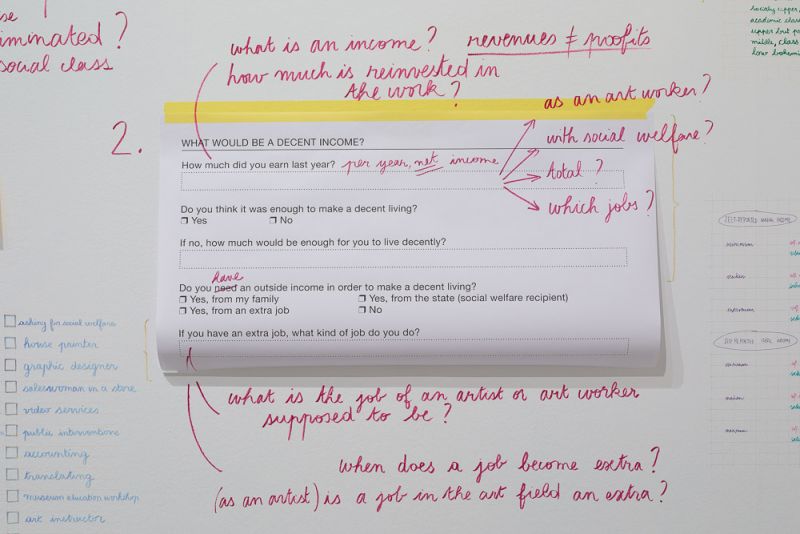 iminated?
social class
what is an income? revenues ≠ profits
how much is reinvested in
the work?
as an art worker?
with social welfare?
total?
which jobs?
2.
WHAT WOULD BE A DECENT INCOME?
How much did you earn last year? per year, net income
Do you think it was enough to make a decent living?
❒ Yes ❒ No
If no, how much would be enough for you to live decently?
have
Do you need an outside income in order to make a decent living?
❒ Yes, from my family ❒ Yes, from the state (social welfare recipient)
❒ Yes, from an extra job ❒ No
If you have an extra job, what kind of job do you do?
what is the job of an artist or art worker
supposed to be?
when does a job become extra?
(as an artist) is a job in the art field an extra?
asking for social welfare
house printer
graphic designer
saleswoman in a store
video services
public interventions
accounting
translating
museum education workshop
art instructor
academic class
middle, class